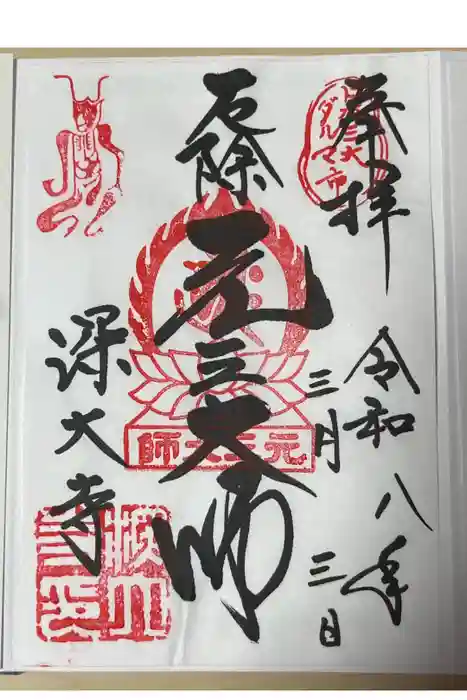 奉拝
令和八年
三月三日
厄除
元三大師
深大寺
ダルマ市
元三大師